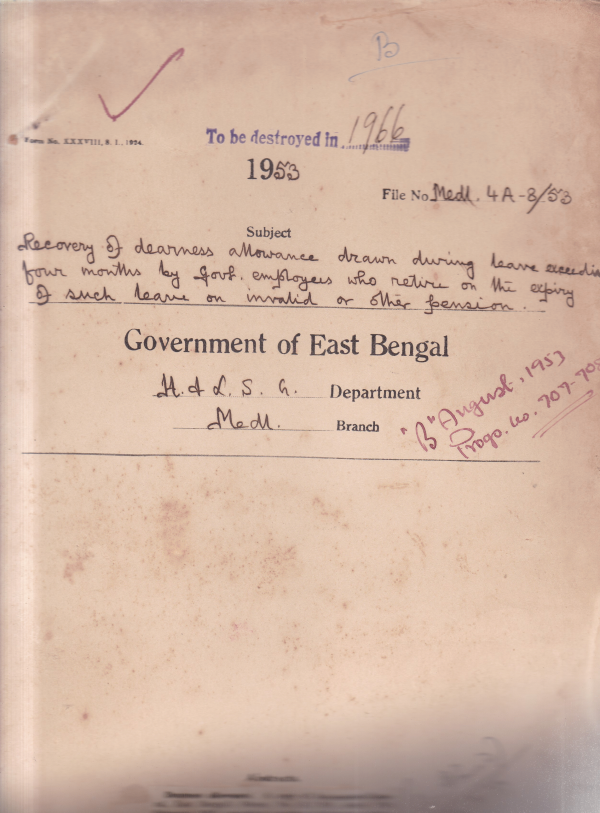 B
Form No. XXXVIII, S. I., 1924.
To be destroyed in 1966
1953
File No. Medl. 4A-8/53
Subject
Recovery of dearness allowance drawn during leave exceedin
four months by Govt. employees who retire on the expiry
of such leave on invalid or other pension.
Government of East Bengal
H. & L. S. G. Department
Medl. Branch
"B" August, 1953
Progs. no. 707-708